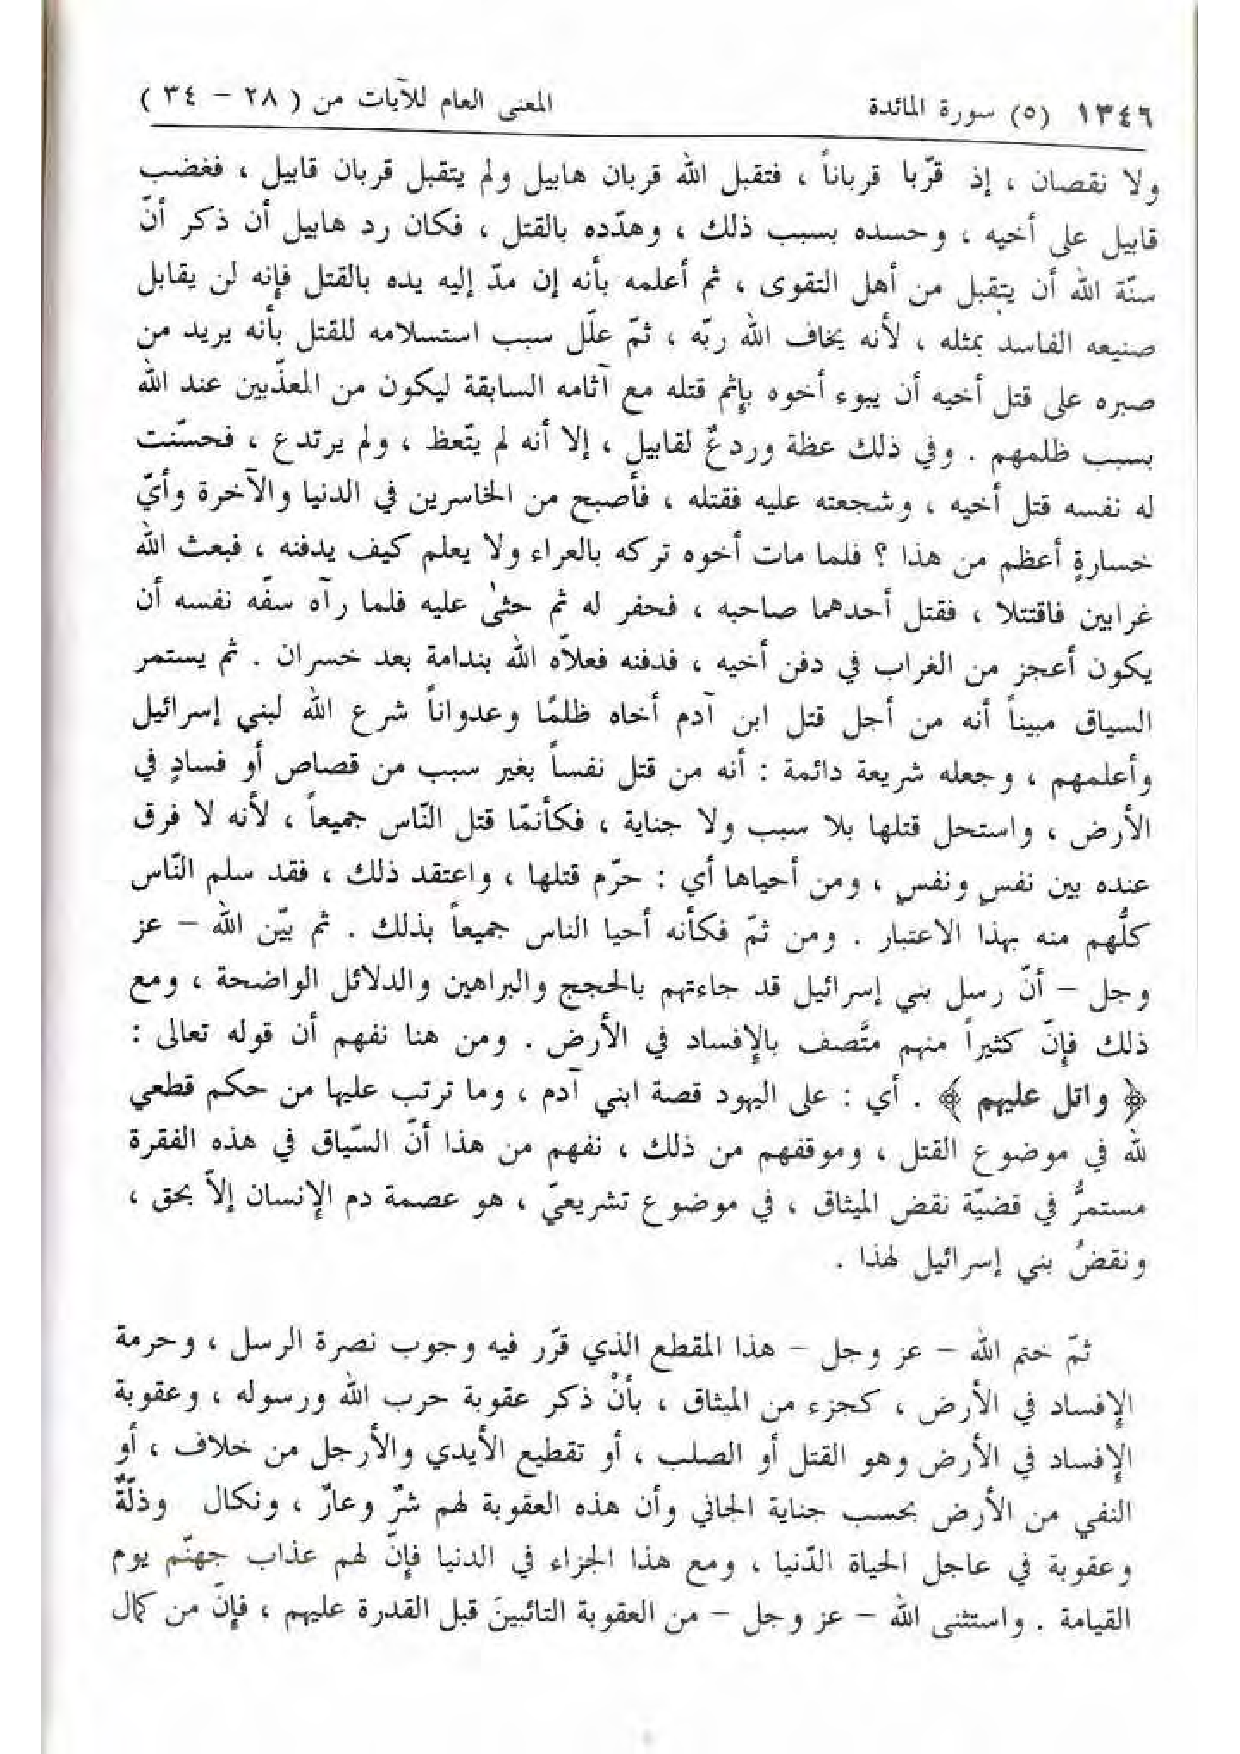 ١٣٤٦ (٥) سورة المائدة المعنى العام للآيات من ( ٢٨ – ٣٤ )
ولا نقصان ، إذ قرّبا قرباناً ، فتقبل الله قربان هابيل ولم يتقبل قربان قابيل ، فغضب
قابيل على أخيه ، وحسده بسبب ذلك ، وهدّده بالقتل ، فكان رد هابيل أن ذكر أنّ
سنّة الله أن يتقبل من أهل التقوى ، ثم أعلمه بأنه إن مدّ إليه يده بالقتل فإنه لن يقابل
صنيعه الفاسد بمثله ، لأنه يخاف الله ربّه ، ثمّ علّل سبب استسلامه للقتل بأنه يريد من
صبره على قتل أخيه أن يبوء أخوه بإثم قتله مع آثامه السابقة ليكون من المعذّبين عند الله
بسبب ظلمهم . وفي ذلك عظة وردعٌ لقابيل ، إلا أنه لم يتّعظ ، ولم يرتدع ، فحسّنت
له نفسه قتل أخيه ، وشجعته عليه فقتله ، فأصبح من الخاسرين في الدنيا والآخرة وأيّ
خسارةٍ أعظم من هذا ؟ فلما مات أخوه تركه بالعراء ولا يعلم كيف يدفنه ، فبعث الله
غرابين فاقتتلا ، فقتل أحدهما صاحبه ، فحفر له ثم حثىٰ عليه فلما رآه سفّه نفسه أن
يكون أعجز من الغراب في دفن أخيه ، فدفنه فعلاّه الله بندامة بعد خسران . ثم يستمر
السياق مبيناً أنه من أجل قتل ابن آدم أخاه ظلمًا وعدواناً شرع الله لبني إسرائيل
وأعلمهم ، وجعله شريعة دائمة : أنه من قتل نفساً بغير سبب من قصاص أو فسادٍ في
الأرض ، واستحل قتلها بلا سبب ولا جناية ، فكأنمّا قتل النّاس جميعاً ، لأنه لا فرق
عنده بين نفس ونفسٍ ، ومن أحياها أي : حرّم قتلها ، واعتقد ذلك ، فقد سلم النّاس
كلُّهم منه بهذا الاعتبار . ومن ثمّ فكأنه أحيا الناس جميعاً بذلك . ثم بيّن الله – عز
وجل – أنّ رسل بني إسرائيل قد جاءتهم بالحجج والبراهين والدلائل الواضحة ، ومع
ذلك فإنّ كثيراً منهم متَّصف بالإفساد في الأرض . ومن هنا نفهم أن قوله تعالى :
﴿ واتل عليهم ﴾ . أي : على اليهود قصة ابني آدم ، وما ترتب عليها من حكم قطعي
لله في موضوع القتل ، وموقفهم من ذلك ، نفهم من هذا أنّ السّياق في هذه الفقرة
مستمرٌّ في قضيّة نقض الميثاق ، في موضوع تشريعيّ ، هو عصمة دم الإنسان إلاّ بحق ،
ونقضُ بني إسرائيل لهذا .
ثمّ ختم الله – عز وجل – هذا المقطع الذي قرّر فيه وجوب نصرة الرسل ، وحرمة
الإفساد في الأرض ، كجزء من الميثاق ، بأنْ ذكر عقوبة حرب الله ورسوله ، وعقوبة
الإفساد في الأرض وهو القتل أو الصلب ، أو تقطيع الأيدي والأرجل من خلاف ، أو
النفي من الأرض بحسب جناية الجاني وأن هذه العقوبة لهم شرٌّ وعارٌ ، ونكال وذلّةٌ
وعقوبة في عاجل الحياة الدّنيا ، ومع هذا الجزاء في الدنيا فإنّ لهم عذاب جهنّم يوم
القيامة . واستثنى الله – عز وجل – من العقوبة التائبينَ قبل القدرة عليهم ، فإنّ من كمال